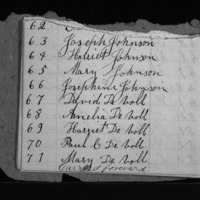 62
63 Joseph Johnson
64 Harriet Johnson
65 Mary Johnson
66 Josephine Johnson
67 David De voll
68 Amelia De voll
69 Harriet De voll
70 Paul C De voll
71 Mary De voll
Carried forward